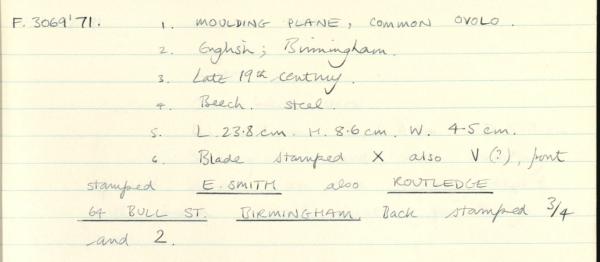 F. 3069'71. 1. MOULDING PLANE, COMMON OVOLO.
2. English; Birmingham.
3. Late 19th century.
4. Beech. steel.
5. L. 23.8 cm. H. 8.6 cm. W. 4.5 cm.
6. Blade stamped X also V (?), front
stamped E. SMITH also ROUTLEDGE
64 BULL ST. BIRMINGHAM. Back stamped 3/4
and 2.